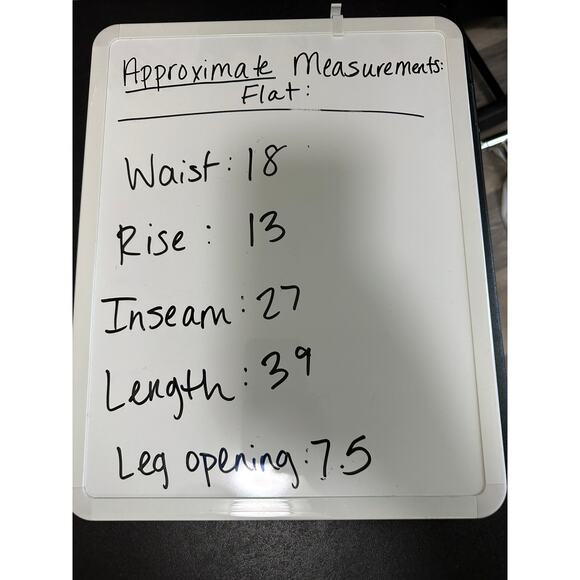 Approximate Measurements:
Flat:
Waist: 18
Rise: 13
Inseam: 27
Length: 39
Leg opening: 7.5